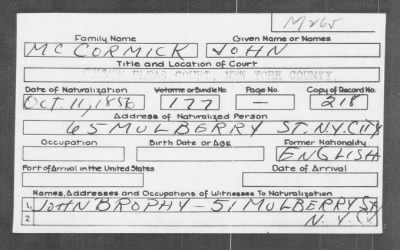 M265
Family Name Given Name or Names
MC CORMICK JOHN
Title and Location of Court
COMMON PLEAS COURT, NEW YORK COUNTY.
Date of Naturalization Volume or Bundle No. Page No. Copy of Record No.
OCT 11, 1856 177 — 218
Address of Naturalized Person
65 MULBERRY ST. N.Y. CITY
Occupation Birth Date or Age Former Nationality
ENGLISH
Port of Arrival in the United States Date of Arrival
Names, Addresses and Occupations of Witnesses To Naturalization
1 JOHN BROPHY - 51 MULBERRY ST
2 N.Y. CY